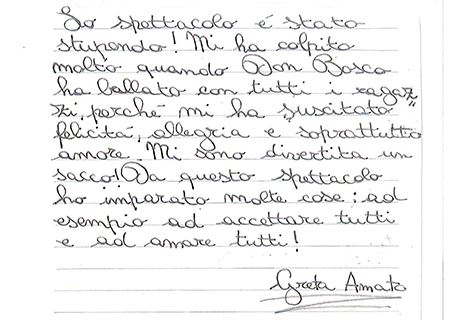 Lo spettacolo é stato
stupendo! Mi ha colpito
molto quando Don Bosco
ha ballato con tutti i ragaz
zi, perché mi ha suscitato
felicitá, allegria e soprattutto
amore. Mi sono divertita un
sacco! Da questo spettacolo
ho imparato molte cose: ad
esempio ad accettare tutti
e ad amare tutti!
Greta Amato